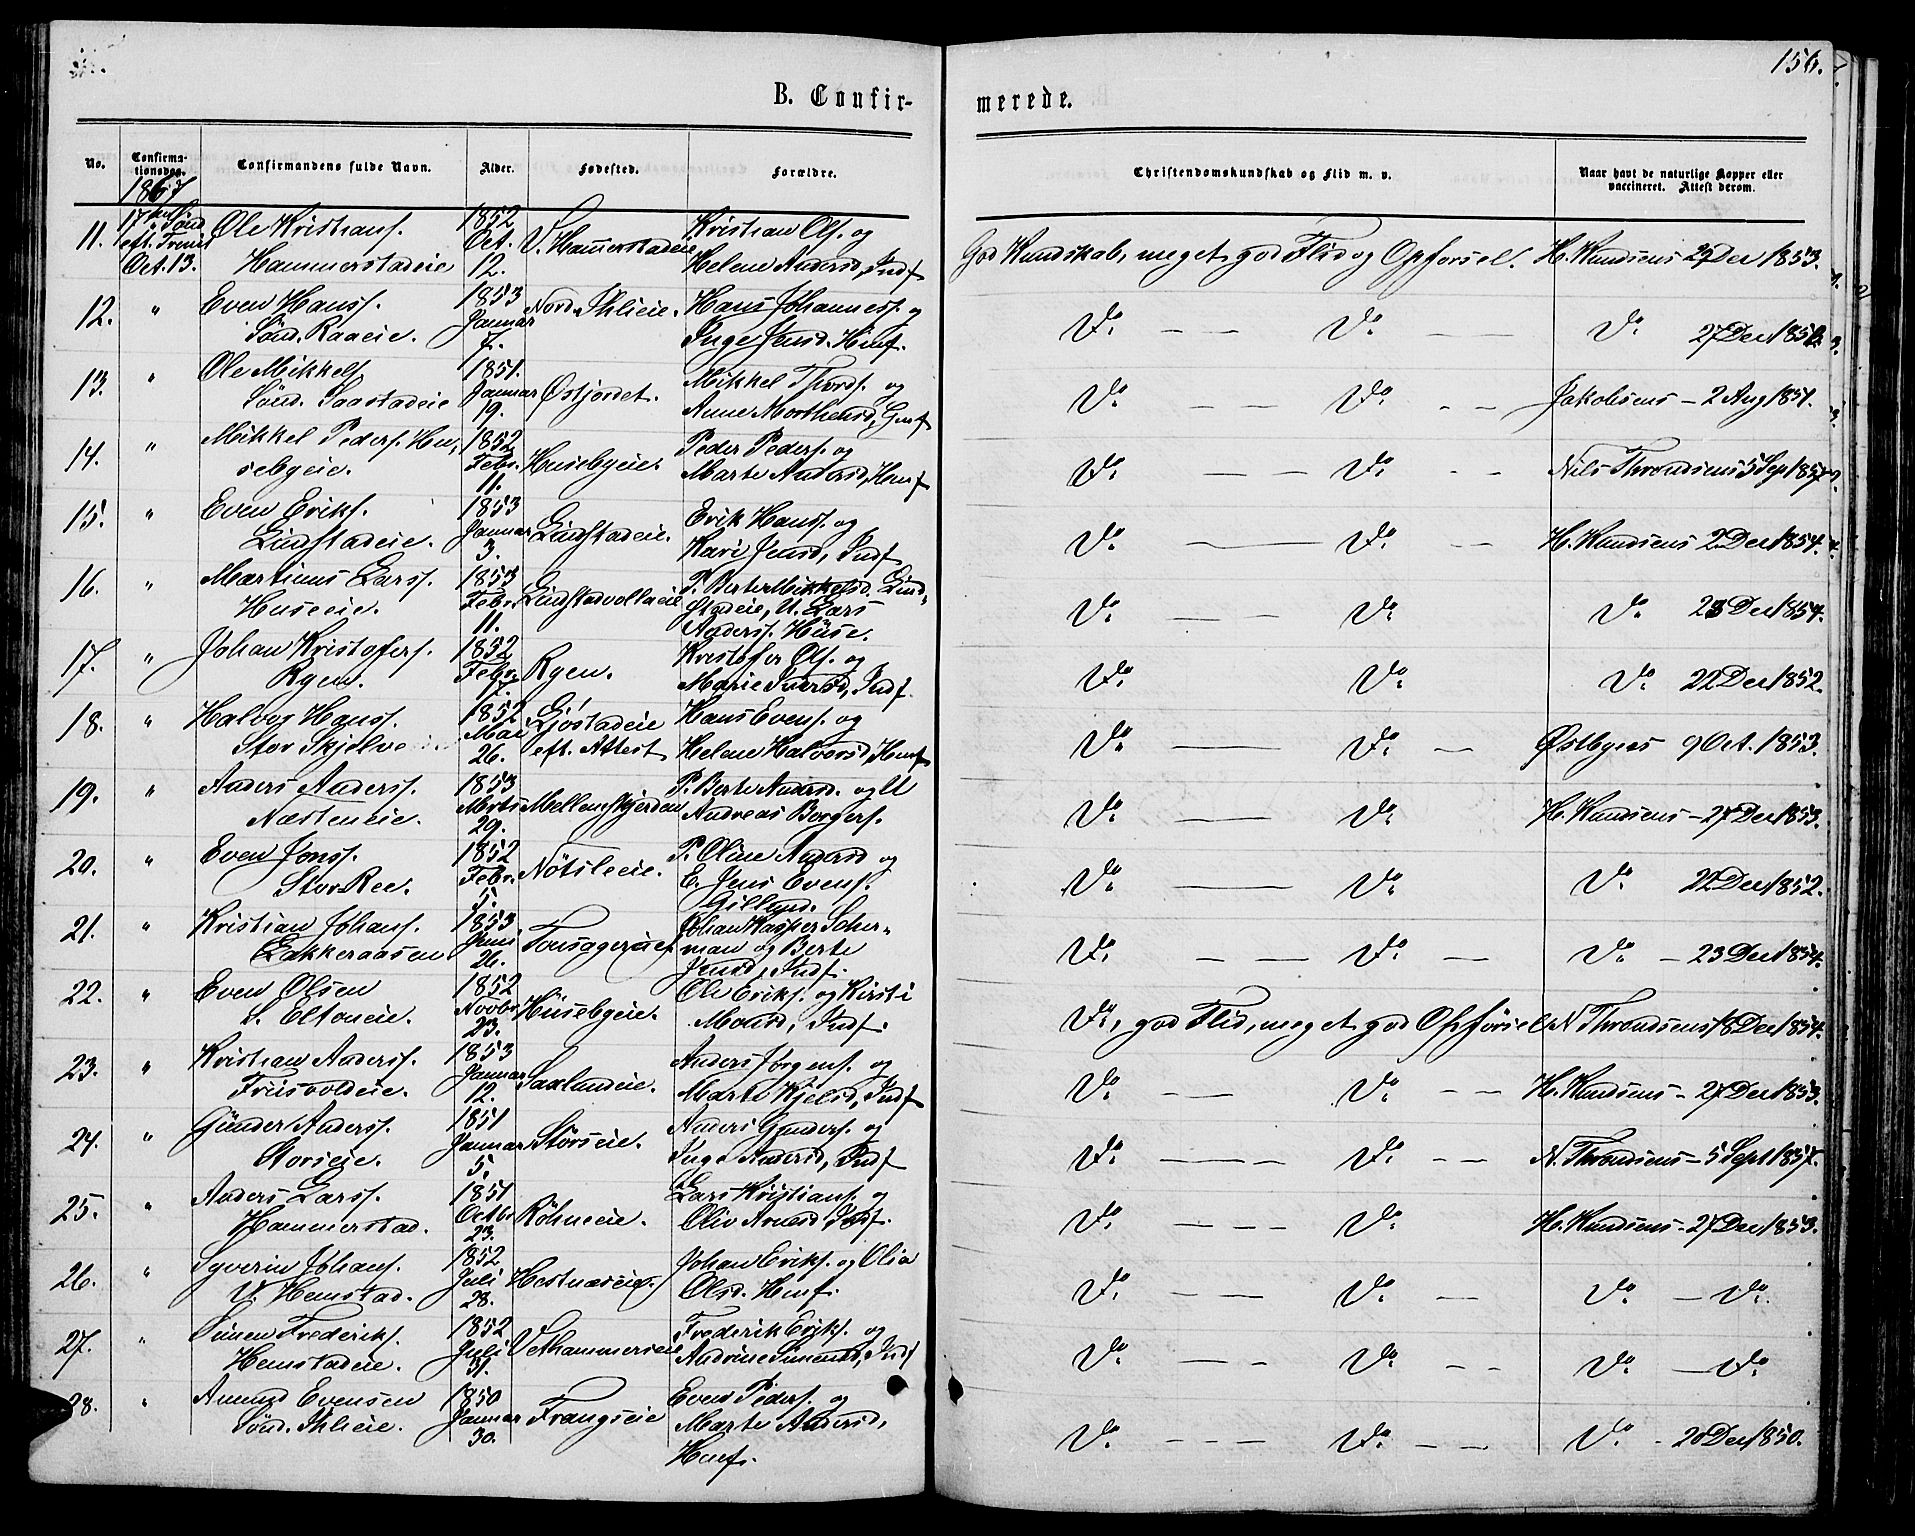 156.
B. Confirmerede.
No.
Confirmationsdag.
Confirmandens fulde Navn.
Alder.
Fødested.
Forældre.
Christendomskundskab og Flid m. v.
Naar havt de naturlige Kopper eller vaccineret. Attest derom.
1867
17de Sønd. eft. Trinit. Oct. 13.
11. Ole Kristians. Hammerstadeie 1852 Oct. 12. V. Hammerstadeie Kristian Ols. og Helene Andersd, Indf God Kundskab, meget god Flid og Opførsel. H. Knudsens 27 Dec 1853.
12. " Even Hanss. Sönd. Raaeie. 1853 Januar 7. Nord. Ihlieie. Hans Johanness. og Inge Jensd. Hmf. Do. — — Do. — — Do. 27 Dec 185
13. " Ole Mikkels. Sönd. Saastadeie 1851. Januar 19. Østjordet. Mikkel Thords. og Anne Morthensd, Gmf Do. — — Do. — — Jakobsens — 2 Aug 1851.
14. " Mikkel Peders. Husebyeie. 1852 Febr. 11. Husebyeie. Peder Peders. og Marte Andersd, Hmf Do. — — Do. — — Nils Throndsens 5 Sep 1857
15. " Even Eriks. Lindstadeie. 1853 Januar 3. Lindstadeie. Erik Hanss. og Kari Jensd, Indf Do. — Do. — — H. Knudsens 2 Dec 1854.
16. " Martinus Larss. Huseeie. 1853 Febr. 11. Lindstadvollaeie P. Berte Mikkelsd. Lindstadeie, U. Lars Anderss. Hüse. Do. — — Do. Do. 23 Dec 1854.
17. " Johan Kristofers. Ryen. 1852 Febr. 17. Ryen. Kristofer Ols. og Marie Iversd, Indf. Do. Do. Do. 22 Dec 1852.
18. " Halvor Hanss. Stor Skjelve 1852 Mai 26. Ljøstadeie eft. Attest Hans Evens. og Helene Halvorsd, Hmf Do. — — Do. — Østbyes 9 Oct. 1853.
19. " Anders Anderss. Næsteneie. 1853 Marts 29. Mellemskjerden P. Berte Andersd. og U Andreas Borgers. Do. — — Do. H. Knudsens — 27 Dec 1853.
20. " Even Jenss. Stor-Ree. 1852 Febr. 5. Nötsleeie. P. Oline Andersd og E. Jens Evens. Gillund. Do. — — Do. Do. 22 Dec 1852.
21. " Kristian Johans. Lakkeraasen 1853. Juni 26. Tonsageneie Johan Kasper Scherman og Berte Jensd, Indf. Do. — — Do. — Do. — 23 Dec 1854.
22. " Even Olsen S. Eltoneie. 1852 Novbr 23. Hüsebyeie. Ole Eriks. og Kirsti Monsd, Indf. Do., god Flid, meget god Opførsel. N Throndsens 18 Dec 1854.
23. " Kristian Anderss. Friisvoldeie. 1853 Januar 12. Saxlundeie. Anders Jörgens. og Marte Kjelsd, Indf Do. — — Do. — H. Knudsens — 27 Dec 1853.
24. " Günder Anderss. Storseie. 1851 Januar 5. Störseie. Anders Gunders. og Inge Andersd, Indf Do. — — Do. — — N. Throndsens — 5 Sept 1857.
25. " Anders Larss. Hammerstad. 1851 Octbr 23. Röhneeie. Lars Kristians. og Oliv Arnesd, Indf. Do. — — Do. H. Knudsens — 27 Dec 1853.
26. " Syverin Johans. V. Hemstad. 1852 Juli 28. Hestnæseie. Johan Eriks. og Olia Olsd. Hmf. Do. — — Do. — — Do. — Do.
27. " Simen Frederiks. Hemstadeie. 1852 Juli 31. Vethammerseie Frederik Eriks. og Andrine Simensd, Indf Do. — — Do. — — Do. — Do.
28. " Amund Evensen Sönd. Ihlieie. 1850 Januar 30. Frangseie Even Peders. og Marte Andersd, Hmf. Do. — — Do. — — Do. — 20 Dec 1850.